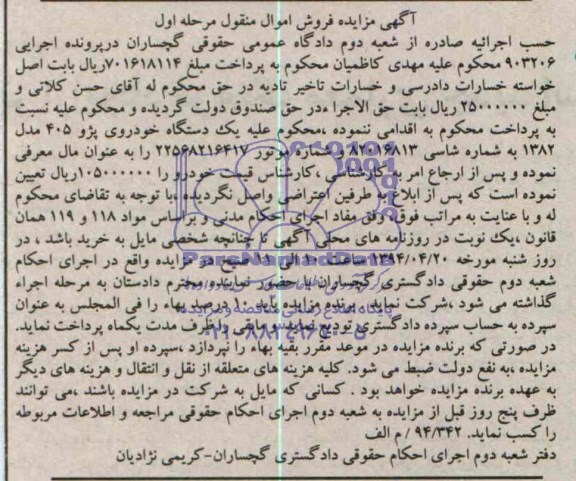 آگهی مزایده فروش اموال منقول مرحله اول
حسب اجرائیه صادره از شعبه دوم دادگاه عمومی حقوقی گچساران درپرونده اجرایی
۹۰۳۲۰۶ محکوم علیه مهدی کاظمیان محکوم به پرداخت مبلغ ۷۰۱۶۱۸۱۱۴ریال بابت اصل
خواسته خسارات دادرسی و خسارات تاخیر تادیه در حق محکوم له آقای حسن کلائی و
مبلغ ۲۵۰۰۰۰۰۰ ریال بابت حق الاجرا ،در حق صندوق دولت گردیده و محکوم علیه نسبت
به پرداخت محکوم به اقدامی ننموده ،محکوم علیه یک دستگاه خودروی پژو ۴۰۵ مدل
۱۳۸۲ به شماره شاسی ۸۲۰۱۶۸۱۳ و شماره موتور ۲۲۵۶۸۲۱۶۴۱۷ را به عنوان مال معرفی
نموده و پس از ارجاع امر به کارشناسی ،کارشناس قیمت خودرو را ۱۰۵۰۰۰۰۰۰ریال تعیین
نموده است که پس از ابلاغ به طرفین اعتراضی واصل نگردیده ،با توجه به تقاضای محکوم
له و با عنایت به مراتب فوق، وفق مفاد اجرای احکام مدنی و براساس مواد ۱۱۸ و ۱۱۹ همان
قانون ،یک نوبت در روزنامه های محلی آگهی تا چنانچه شخصی مایل به خرید باشد ، در
روز شنبه مورخه ۱۳۹۴/۰۴/۲۰ ساعت ۱۰ الی ۱۱ صبح در مزایده واقع در اجرای احکام
شعبه دوم حقوقی دادگستری گچساران با حضور نماینده محترم دادستان به مرحله اجراء
گذاشته می شود ،شرکت نماید . برنده مزایده باید ۱۰ درصد بهاء را فی المجلس به عنوان
سپرده به حساب سپرده دادگستری تودیع نماید و مابقی را ظرف مدت یکماه پرداخت نماید.
در صورتی که برنده مزایده در موعد مقرر بقیه بهاء را نپردازد ،سپرده او پس از کسر هزینه
مزایده ،به نفع دولت ضبط می شود. کلیه هزینه های متعلقه از نقل و انتقال و هزینه های دیگر
به عهده برنده مزایده خواهد بود . کسانی که مایل به شرکت در مزایده باشند ،می توانند
ظرف پنج روز قبل از مزایده به شعبه دوم اجرای احکام حقوقی مراجعه و اطلاعات مربوطه
را کسب نماید. ۹۴/۳۴۲ / م الف
دفتر شعبه دوم اجرای احکام حقوقی دادگستری گچساران-کریمی نژادیان
ParsNamadData
پایگاه اطلاع رسانی مناقصه و مزایده